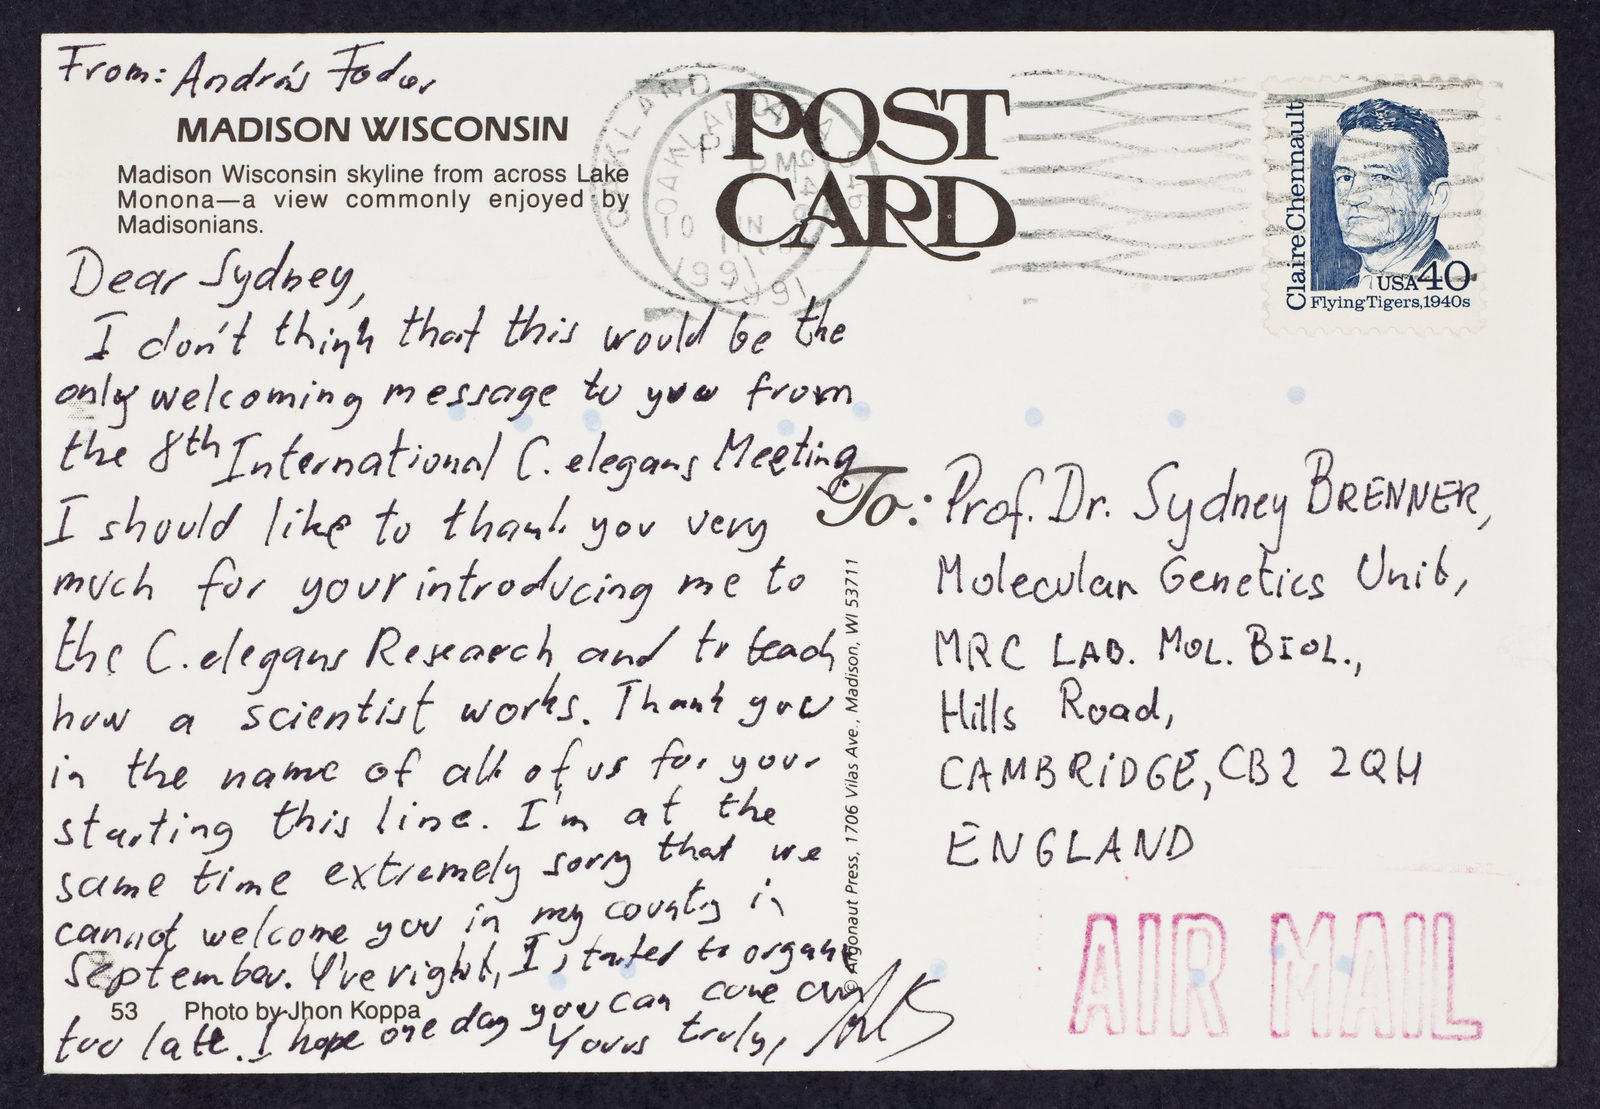 From: András Fodor
MADISON WISCONSIN
Madison Wisconsin skyline from across Lake
Monona—a view commonly enjoyed by
Madisonians.
POST
CARD
OAKLAND
OAKLAND
10
1991
1991
Claire Chennault
USA 40
Flying Tigers, 1940s
Dear Sydney,
I don't think that this would be the
only welcoming message to you from
the 8th International C. elegans Meeting.
I should like to thank you very
much for your introducing me to
the C. elegans Research and to teach
how a scientist works. Thank you
in the name of all of us for your
starting this line. I'm at the
same time extremely sorry that we
cannot welcome you in my country in
September. Y're right, I started to organ
too late. I hope one day you can come
Yours truly,
53 Photo by Jhon Koppa
© Argonaut Press, 1706 Vilas Ave., Madison, WI 53711
To: Prof. Dr. Sydney BRENNER,
Molecular Genetics Unit,
MRC LAB. MOL. BIOL.,
Hills Road,
CAMBRIDGE, CB2 2QH
ENGLAND
AIR MAIL